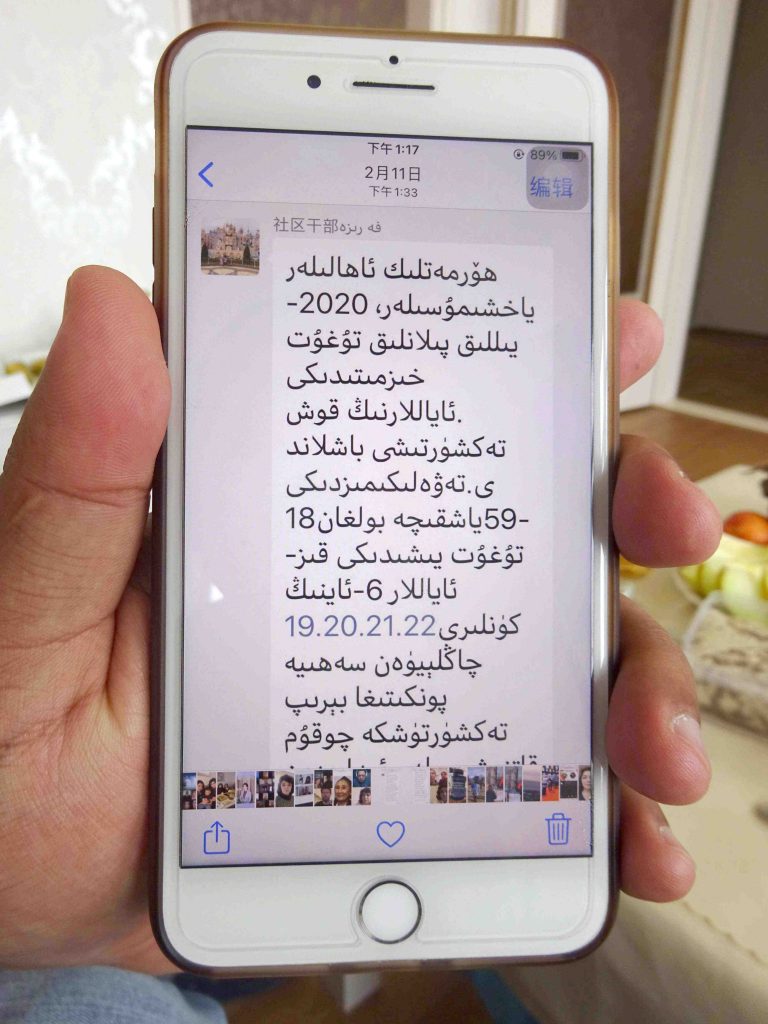 下午1:17
89%
2月11日
下午1:33
编辑
社区干部فە رىزە
ھۆرمەتلىك ئاھالىلەر
ياخشىمۇسىلەر، 2020-
يىللىق پىلانلىق تۇغۇت
خىزمىتىدىكى
ئاياللارنىڭ قوش.
تەكشۈرتىشى باشلاند
ى.تەۋەلىكىمىزدىكى
18ياشقىچە بولغان59-
تۇغۇت يىشىدىكى قىز-
ئاياللار 6-ئاينىڭ
كۈنلىرى19.20.21.22
چاڭلىيۈەن سەھىيە
پونكىتىغا بېرىپ
تەكشۈرتۈشكە چوقۇم